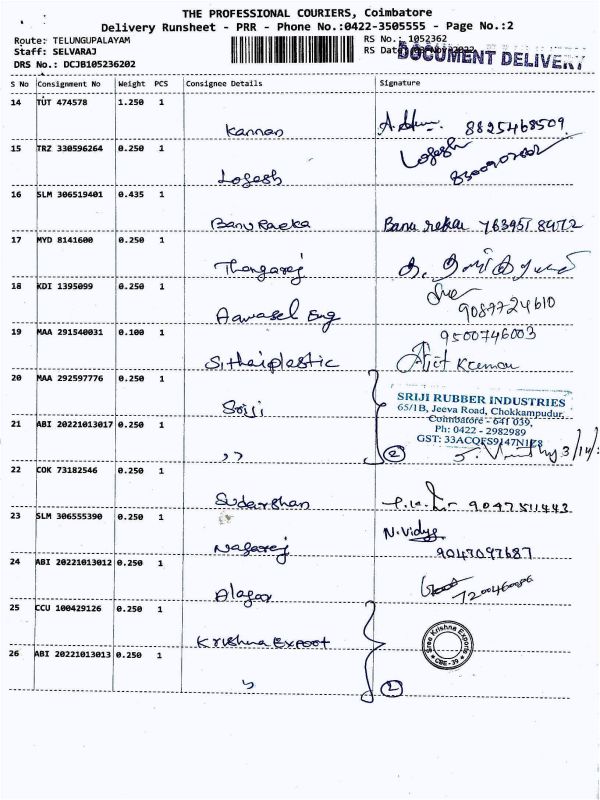 THE PROFESSIONAL COURIERS, Coimbatore
Delivery Runsheet - PRR - Phone No.:0422-3505555 - Page No.:2
Route: TELUNGUPALAYAM
Staff: SELVARAJ
DRS No.: DCJB105236202
RS No.: 1052362
RS Date
DOCUMENT DELIVERY
S No Consignment No Weight PCS Consignee Details Signature
14 TUT 474578 1.250 1 Kannan 8825468509
15 TRZ 330596264 0.250 1 Logesh Logesh
16 SLM 306519401 0.435 1 Banu Raeka Banu reka
17 MYD 8141600 0.250 1 Thangaraj
18 KDI 1395099 0.250 1 Aawasel Eng 9087724610
19 MAA 291540031 0.100 1 Sithaiplastic 9500746003
Ajit Kumar
20 MAA 292597776 0.250 1 Sriji
SRIJI RUBBER INDUSTRIES
65/1B, Jeeva Road, Chokkampudur,
Coimbatore - 641 039,
Ph: 0422 - 2982989
GST: 33ACQFS9147N1
21 ABI 20221013017 0.250 1 ,, 2
22 COK 73182546 0.250 1 Sudarshan 9047511443
23 SLM 306555390 0.250 1 Nagaraj N. Vidya
9047097687
24 ABI 20221013012 0.250 1 Alagar
25 CCU 100429126 0.250 1 Krishna Export
Sree Krishna Exports
CBE-39
26 ABI 20221013013 0.250 1 ,, 2